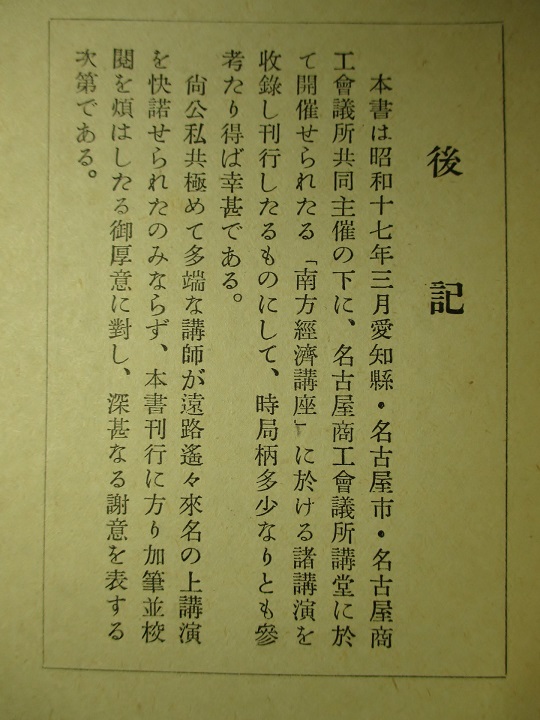 後記
本書は昭和十七年三月愛知縣・名古屋市・名古屋商
工會議所共同主催の下に、名古屋商工會議所講堂に於
て開催せられたる「南方經濟講座」に於ける諸講演を
收錄し刊行したるものにして、時局柄多少なりとも參
考たり得ば幸甚である。
尙公私共極めて多端な講師が遠路遙々來名の上講演
を快諾せられたのみならず、本書刊行に方り加筆並校
閱を煩はしたる御厚意に對し、深甚なる謝意を表する
次第である。